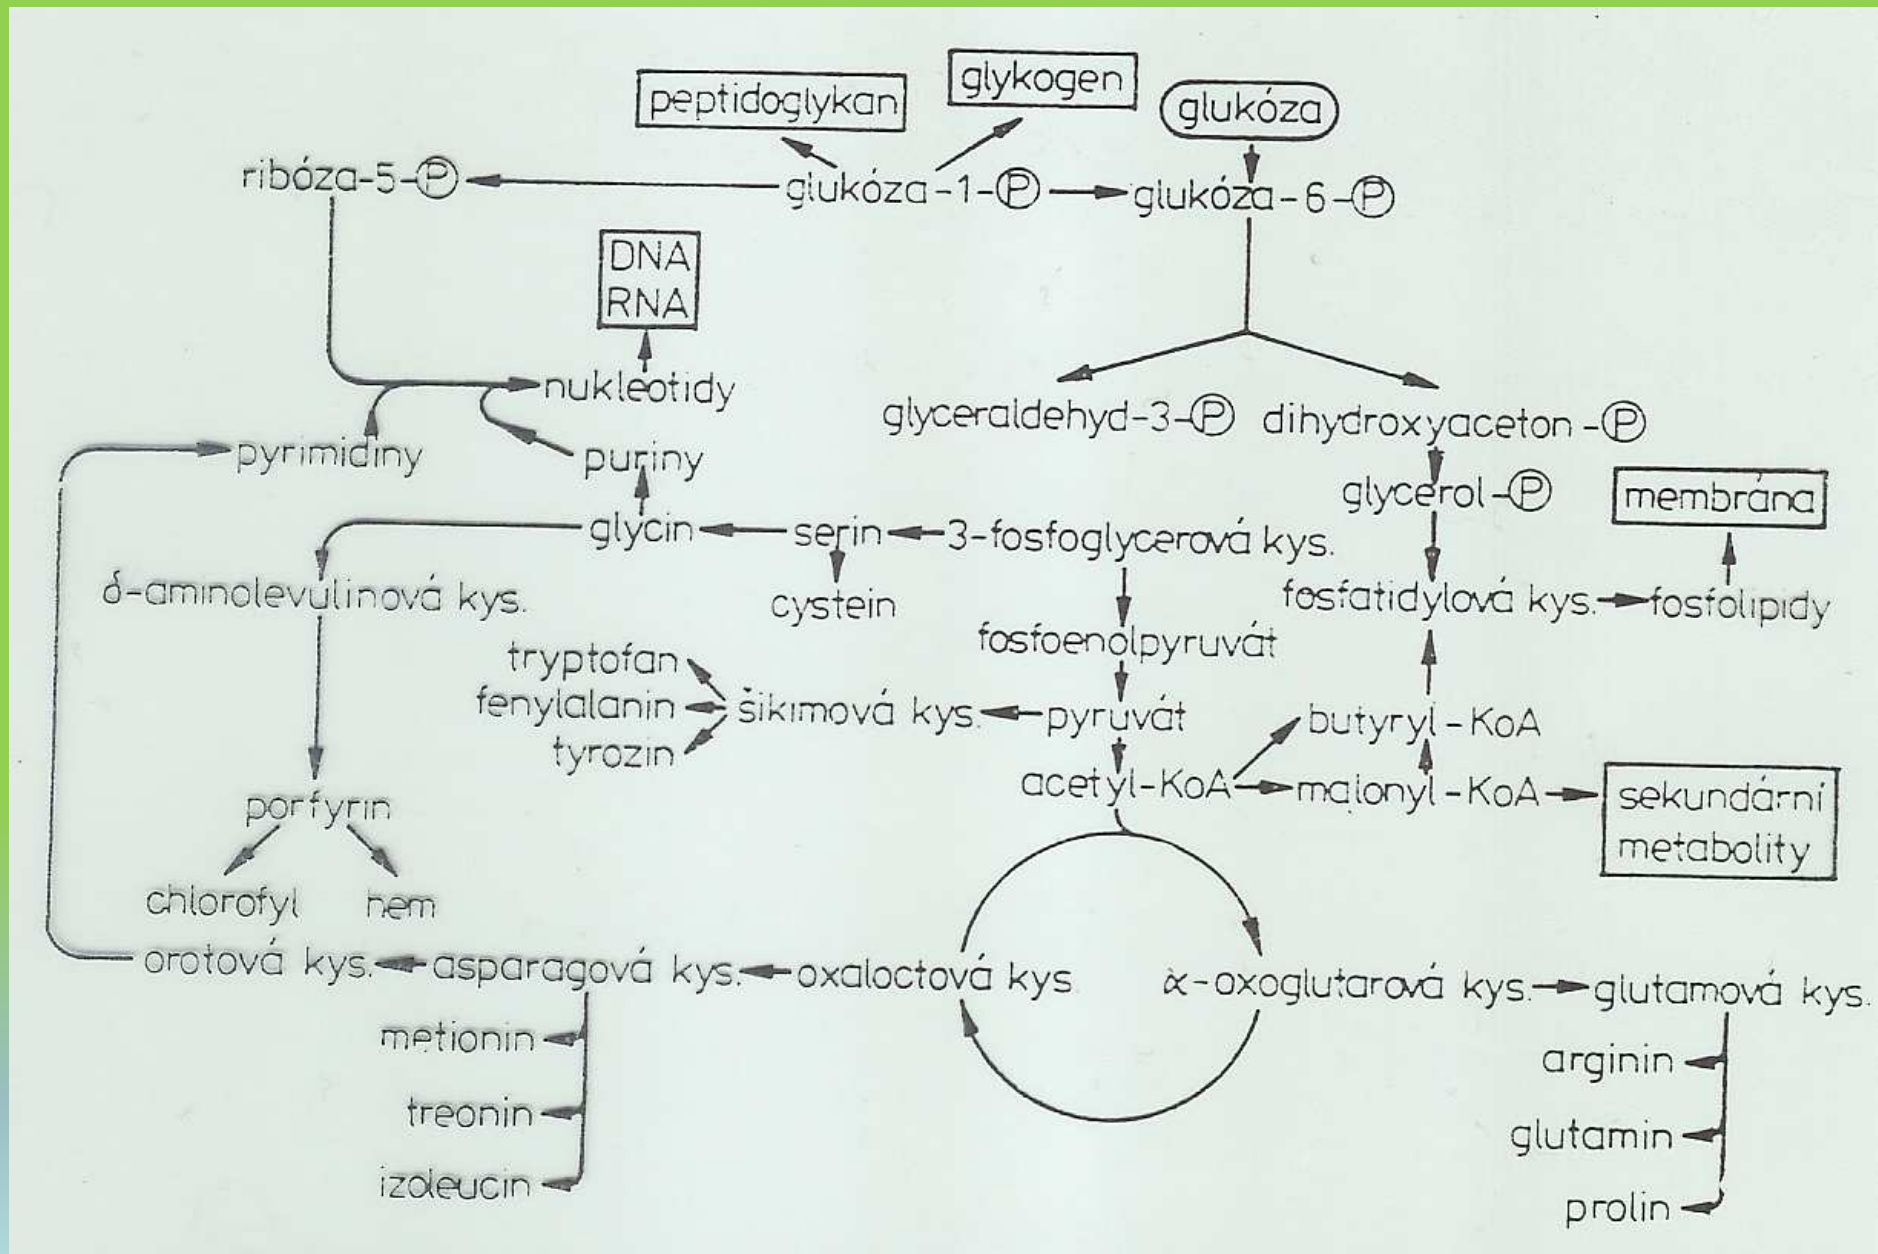 peptidoglykan
glykogen
glukóza
ribóza-5-P
glukóza-1-P
glukóza-6-P
DNA
RNA
nukleotidy
glyceraldehyd-3-P
dihydroxyaceton-P
pyrimidiny
puriny
glycerol-P
membrána
glycin
serin
3-fosfoglycerová kys.
δ-aminolevulinová kys.
cystein
fosfatidylová kys.
fosfolipidy
fosfoenolpyruvát
tryptofan
fenylalanin
tyrozin
šikimová kys.
pyruvát
butyryl-KoA
acetyl-KoA
malonyl-KoA
sekundární
metabolity
porfyrin
chlorofyl
hem
orotová kys.
asparagová kys.
oxaloctová kys.
α-oxoglutarová kys.
glutamová kys.
metionin
treonin
izoleucin
arginin
glutamin
prolin